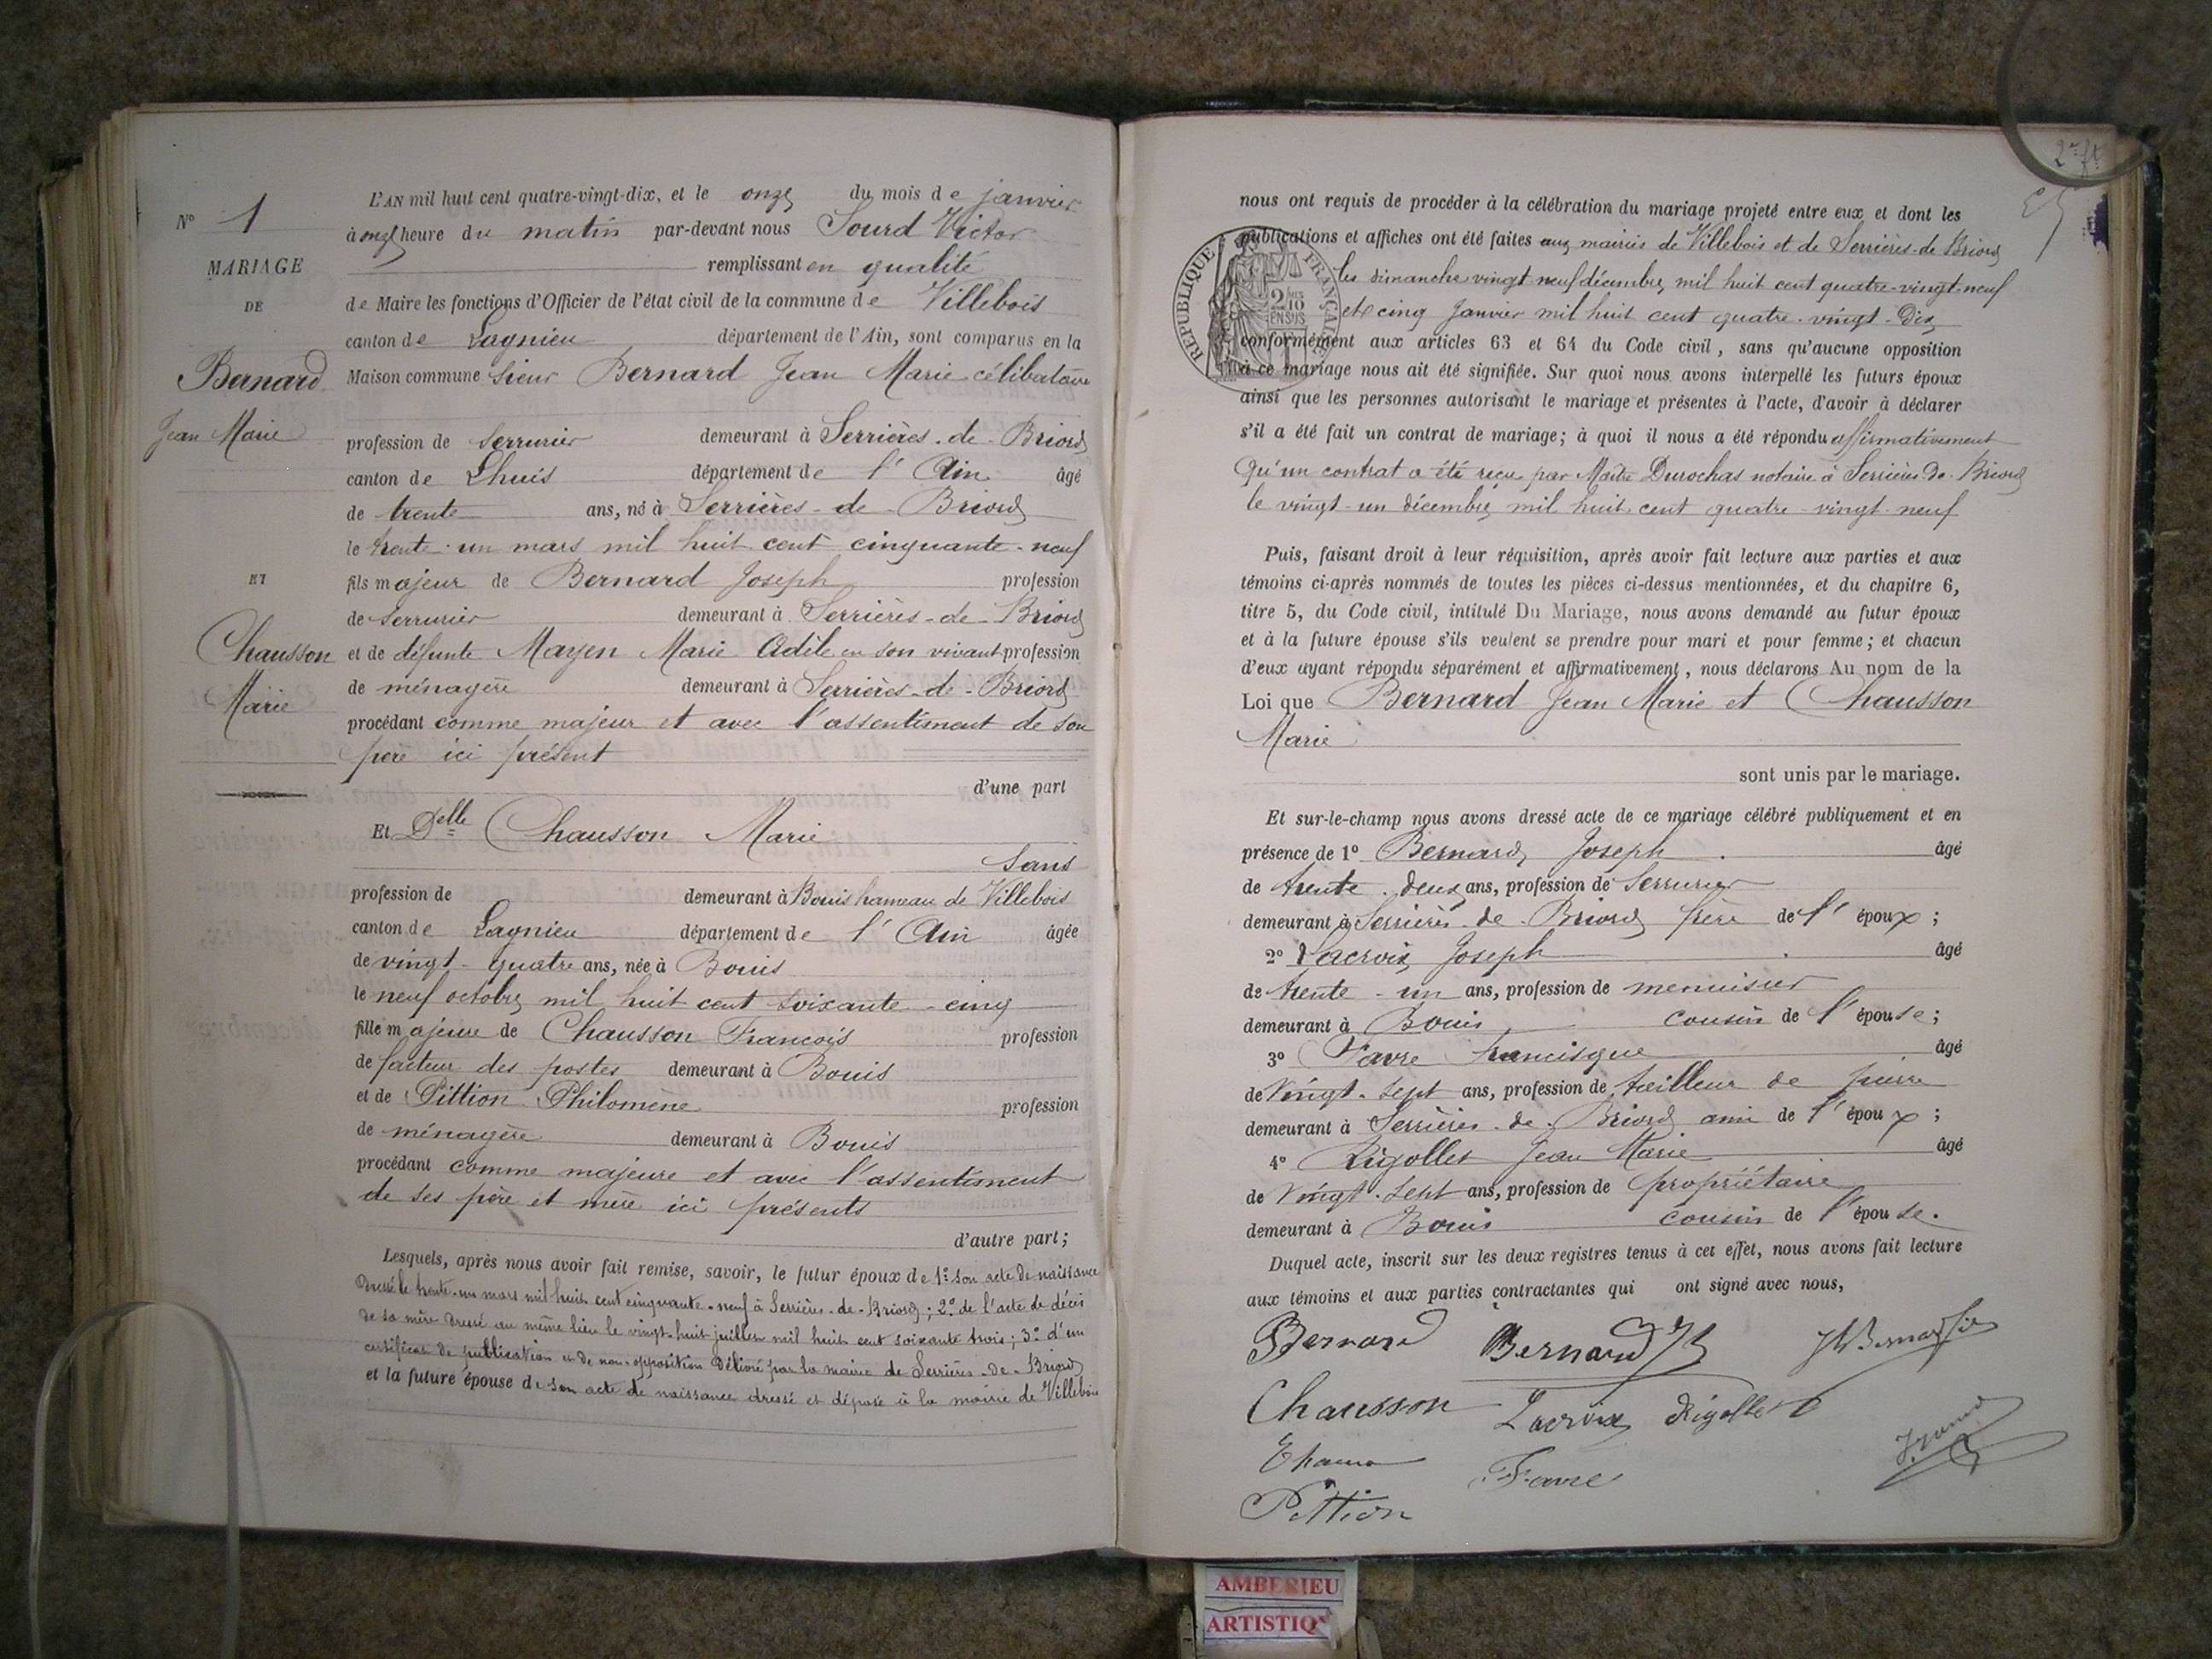 N° 1
MARIAGE
DE
Bernard
Jean Marie
ET
Chausson
Marie
L'AN mil huit cent quatre-vingt-dix, et le onze du mois de janvier
à onze heure du matin par-devant nous Sourd Victor
remplissant en qualité
de Maire les fonctions d'Officier de l'état civil de la commune de Villebois
canton de Lagnieu département de l'Ain, sont comparus en la
Maison commune sieur Bernard Jean Marie célibataire
profession de serrurier demeurant à Serrières-de-Briord
canton de Lhuis département de l'Ain âgé
de trente ans, né à Serrières-de-Briord
le trente-un mars mil huit cent cinquante-neuf
fils majeur de Bernard Joseph profession
de serrurier demeurant à Serrières-de-Briord
et de défunte Mayen Marie Adèle en son vivant profession
de ménagère demeurant à Serrières-de-Briord
procédant comme majeur et avec l'assentiment de son
père ici présent
d'une part
Et Delle Chausson Marie
sans
profession de demeurant à Bouis hameau de Villebois
canton de Lagnieu département de l'Ain âgée
de vingt-quatre ans, née à Bouis
le neuf octobre mil huit cent soixante-cinq
fille majeure de Chausson François profession
de facteur des postes demeurant à Bouis
et de Pittion Philomène profession
de ménagère demeurant à Bouis
procédant comme majeure et avec l'assentiment
de ses père et mère ici présents
d'autre part;
Lesquels, après nous avoir fait remise, savoir, le futur époux de 1° son acte de naissance
dressé le trente-un mars mil huit cent cinquante-neuf à Serrières-de-Briord; 2° de l'acte de décès
de sa mère dressé au même lieu le vingt-huit juillet mil huit cent soixante trois; 3° d'un
certificat de publication et de non-opposition délivré par la mairie de Serrières-de-Briord
et la future épouse de son acte de naissance dressé et déposé à la mairie de Villebois
2e ft
nous ont requis de procéder à la célébration du mariage projeté entre eux et dont les
publications et affiches ont été faites aux mairies de Villebois et de Serrières-de-Briord
les dimanche vingt neuf décembre mil huit cent quatre-vingt-neuf
et cinq Janvier mil huit cent quatre-vingt-dix
REPUBLIQUE FRANÇAISE
conformément aux articles 63 et 64 du Code civil, sans qu'aucune opposition
à ce mariage nous ait été signifiée. Sur quoi nous avons interpellé les futurs époux
ainsi que les personnes autorisant le mariage et présentes à l'acte, d'avoir à déclarer
s'il a été fait un contrat de mariage; à quoi il nous a été répondu affirmativement
Qu'un contrat a été reçu par Maître Durochas notaire à Serrières-de-Briord
le vingt-un décembre mil huit cent quatre-vingt neuf
Puis, faisant droit à leur réquisition, après avoir fait lecture aux parties et aux
témoins ci-après nommés de toutes les pièces ci-dessus mentionnées, et du chapitre 6,
titre 5, du Code civil, intitulé Du Mariage, nous avons demandé au futur époux
et à la future épouse s'ils veulent se prendre pour mari et pour femme; et chacun
d'eux ayant répondu séparément et affirmativement, nous déclarons Au nom de la
Loi que Bernard Jean Marie et Chausson
Marie
sont unis par le mariage.
Et sur-le-champ nous avons dressé acte de ce mariage célébré publiquement et en
présence de 1° Bernard Joseph âgé
de trente-deux ans, profession de Serrurier
demeurant à Serrières de Briord frère de l'époux;
2° Lacroix Joseph âgé
de trente-un ans, profession de menuisier
demeurant à Bouis cousin de l'épouse;
3° Favre Francisque âgé
de vingt-sept ans, profession de tailleur de pierre
demeurant à Serrières-de-Briord ami de l'époux;
4° Rigollet Jean Marie âgé
de vingt-sept ans, profession de propriétaire
demeurant à Bouis cousin de l'épouse.
Duquel acte, inscrit sur les deux registres tenus à cet effet, nous avons fait lecture
aux témoins et aux parties contractantes qui ont signé avec nous,
Bernard Bernard
Chausson Lacroix Rigollet
Favre
Pittion
AMBERIEU
ARTISTIQ